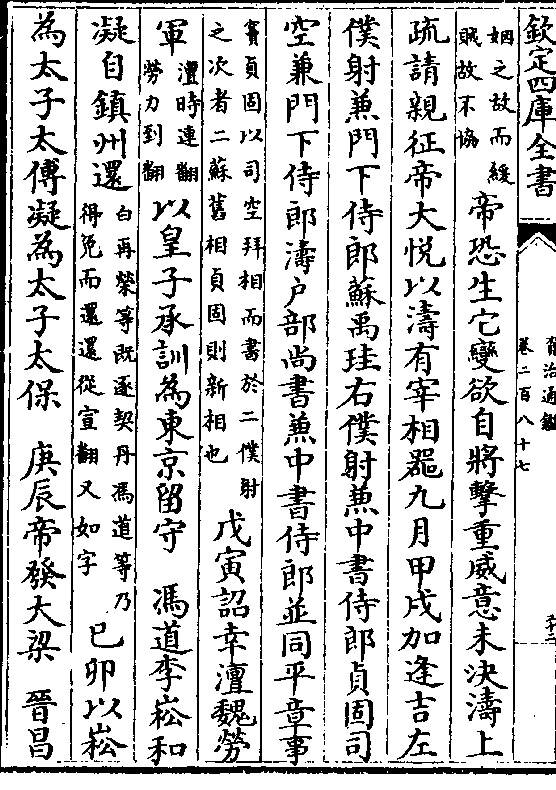 欽定四庫全書
資治通鑑
卷二百八十七
姻之故而緩
賊故不協
帝恐生它變欲自將擊重威意未決濤上
疏請親征帝大悅以濤有宰相器九月甲戌加逢吉左
僕射兼門下侍郎蘇禹珪右僕射兼中書侍郎貞固司
空兼門下侍郎濤戶部尚書兼中書侍郎並同平章事
竇貞固以司空拜相而書於二僕射
之次者二蘇舊相貞固則新相也
戊寅詔幸澶魏勞
軍
澶時連翻
勞力到翻
以皇子承訓為東京留守　馮道李崧和
凝自鎮州還
白再榮等既逐契丹馮道等乃
得免而還還從宣翻又如字
已卯以崧
為太子太傅凝為太子太保　庚辰帝發大梁　晉昌